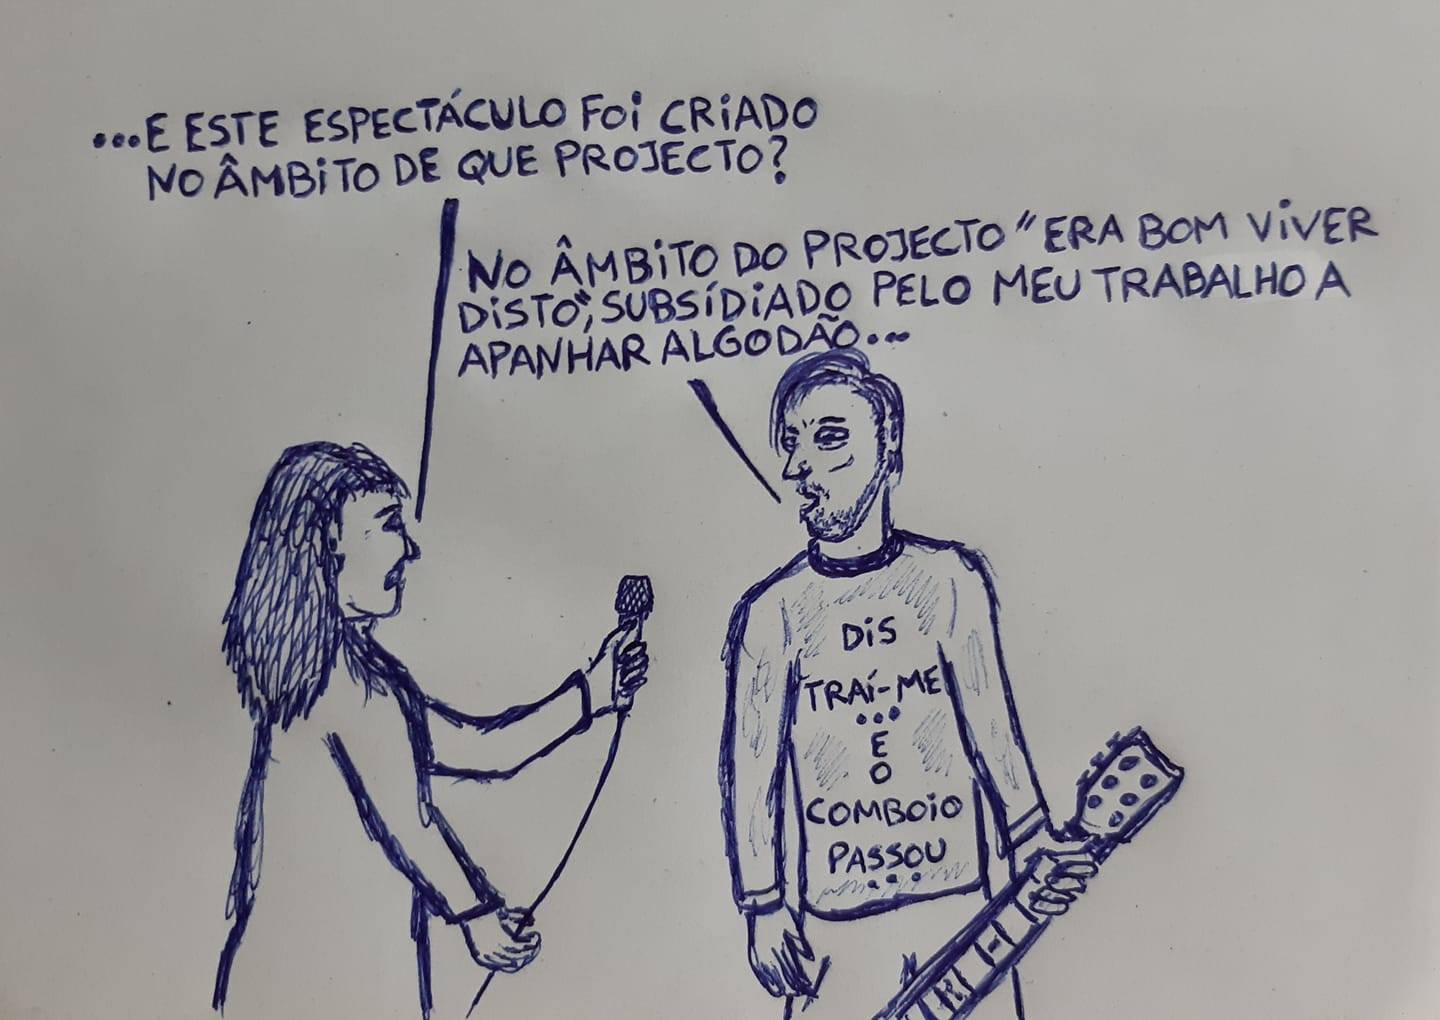 ...E ESTE ESPECTÁCULO FOI CRIADO
NO ÂMBITO DE QUE PROJECTO?
NO ÂMBITO DO PROJECTO "ERA BOM VIVER
DISTO", SUBSÍDIADO PELO MEU TRABALHO A
APANHAR ALGODÃO...
DIS
TRAÍ-ME
...
E
O
COMBOIO
PASSOU
...